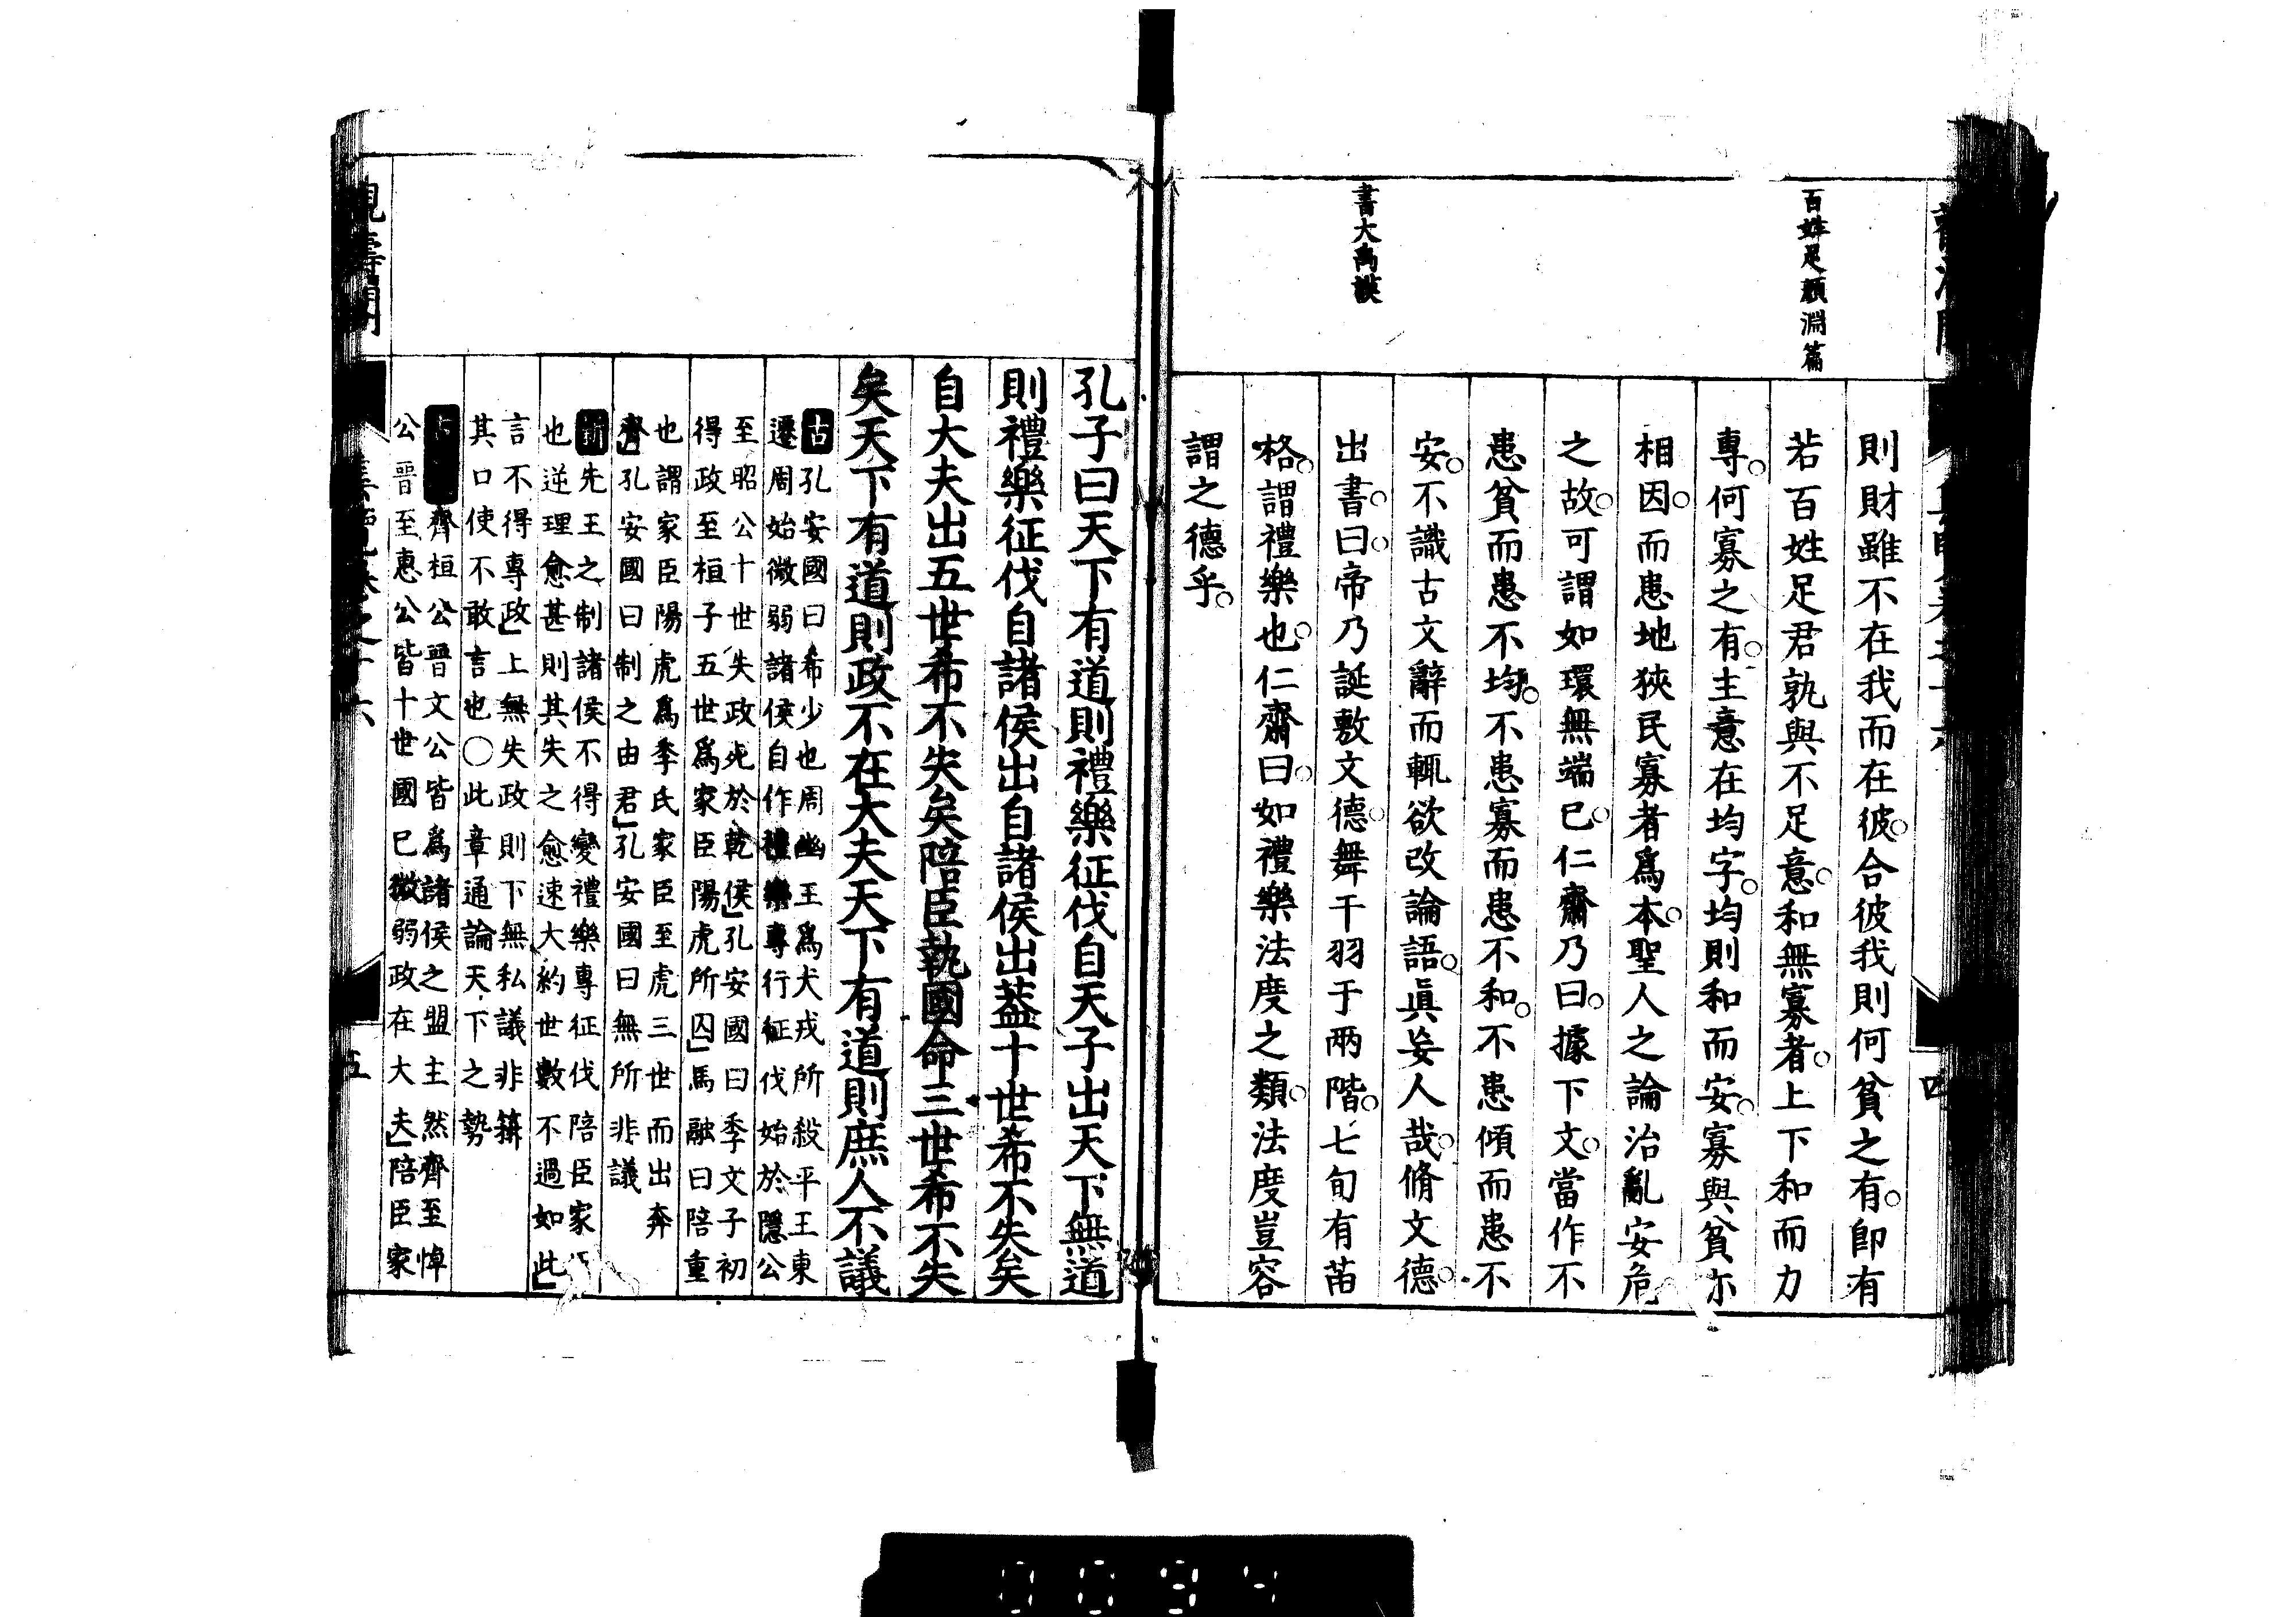 百姓足顏淵篇
書大禹謨
則財雖不在我而在彼。合彼我則何貧之有。卽有
若百姓足君孰與不足意。和無寡者。上下和而力
專。何寡之有。主意在均字。均則和而安。寡與貧亦
相因。而患地狹民寡者爲本。聖人之論治亂安危
之故。可謂如環無端已。仁齋乃曰。據下文。當作不
患貧而患不均。不患寡而患不和。不患傾而患不
安。不識古文辭而輒欲改論語。眞妄人哉。脩文德。
出書。曰。帝乃誕敷文德。舞干羽于兩階。七旬有苗
格。謂禮樂也。仁齋曰。如禮樂法度之類。法度豈容
謂之德乎。
四
孔子曰天下有道則禮樂征伐自天子出天下無道
則禮樂征伐自諸侯出自諸侯出蓋十世希不失矣
自大夫出五世希不失矣陪臣執國命三世希不失
矣天下有道則政不在大夫天下有道則庶人不議
古孔安國曰希少也周幽王爲犬戎所殺平王東
遷周始微弱諸侯自作禮樂專行征伐始於隱公
至昭公十世失政死於乾侯」孔安國曰季文子初
得政至桓子五世爲家臣陽虎所囚」馬融曰陪重
也謂家臣陽虎爲季氏家臣至虎三世而出奔
齊」孔安國曰制之由君」孔安國曰無所非議
新先王之制諸侯不得變禮樂專征伐陪臣家
也逆理愈甚則其失之愈速大約世數不過如此」
言不得專政」上無失政則下無私議非箝
其口使不敢言也○此章通論天下之勢
齊桓公晉文公皆爲諸侯之盟主然齊至悼
公晉至惠公皆十世國已微弱政在大夫」陪臣家
五